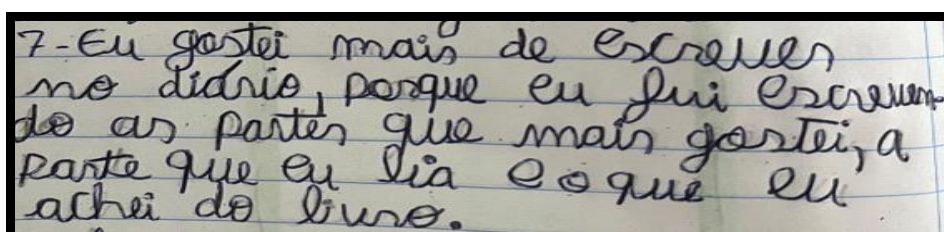 7-Eu gostei mais de escrever
no diário, porque eu fui escreven-
do as partes que mais gostei, a
parte que eu lia e o que eu
achei do livro.